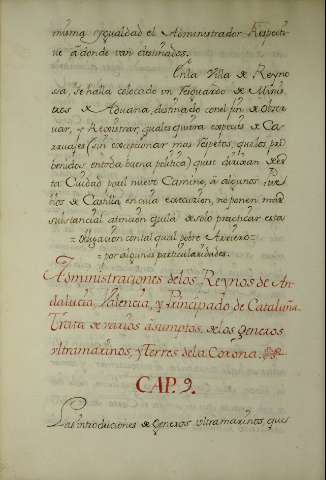 misma ygualdad el Administrador Respecti=
ue a donde van destinados.
En la Villa de Reyno
sa, se halla colocado un Resguardo de Minis
tros de Aduana, destinado con el fin de Obser
uar, y Reconstrar, quales quiera especies de Ca=
rruages (sin excepcionar mas respetos, que los pro
benidos en toda buena politica) que se dirixan de es
ta Ciudad por el nuevo Camino, à algunos Pue=
blos de Castilla en cuia execucion, no ponen mas
substancial atencion que la de solo practicar esta
= obligacion con tal qual pobre Arriero =
= por algunas particularidades.
Administraciones de los Reynos de An
dalucia, Valencia, y Principado de Cataluña.
Trata de varios asumptos, de los Generos
vltramarinos, y Yerros de la Corona.
CAP. 9.
Las introduciones de Generos vltramarinos, que s